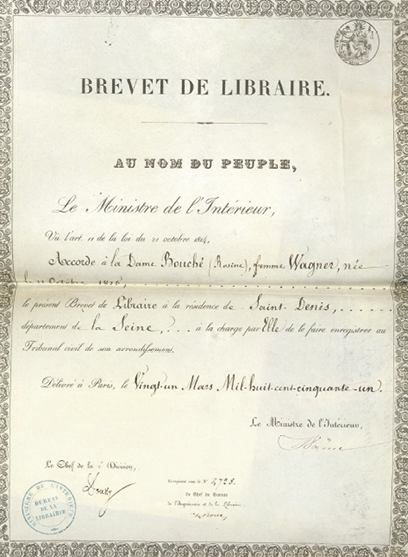 BREVET DE LIBRAIRE.
AU NOM DU PEUPLE,
Le Ministre de l'Intérieur,
Vu l'art. 11 de la loi du 21 octobre 1814,
Accorde à la Dame Bouché (Rosine), femme Wagner, née
le présent Brevet de Libraire à la résidence de Saint-Denis,
département de la Seine, à la charge par Elle de le faire enregistrer au
Tribunal civil de son arrondissement.
Délivré à Paris, le Vingt-un Mars Mil-huit-cent-cinquante-un.
Le Ministre de l'Intérieur,
Le Chef de la Division,
Enregistré sous le N° 4728.
Le Chef du Bureau
de l'Imprimerie et de la Librairie,
BUREAU
DE LA
LIBRAIRIE